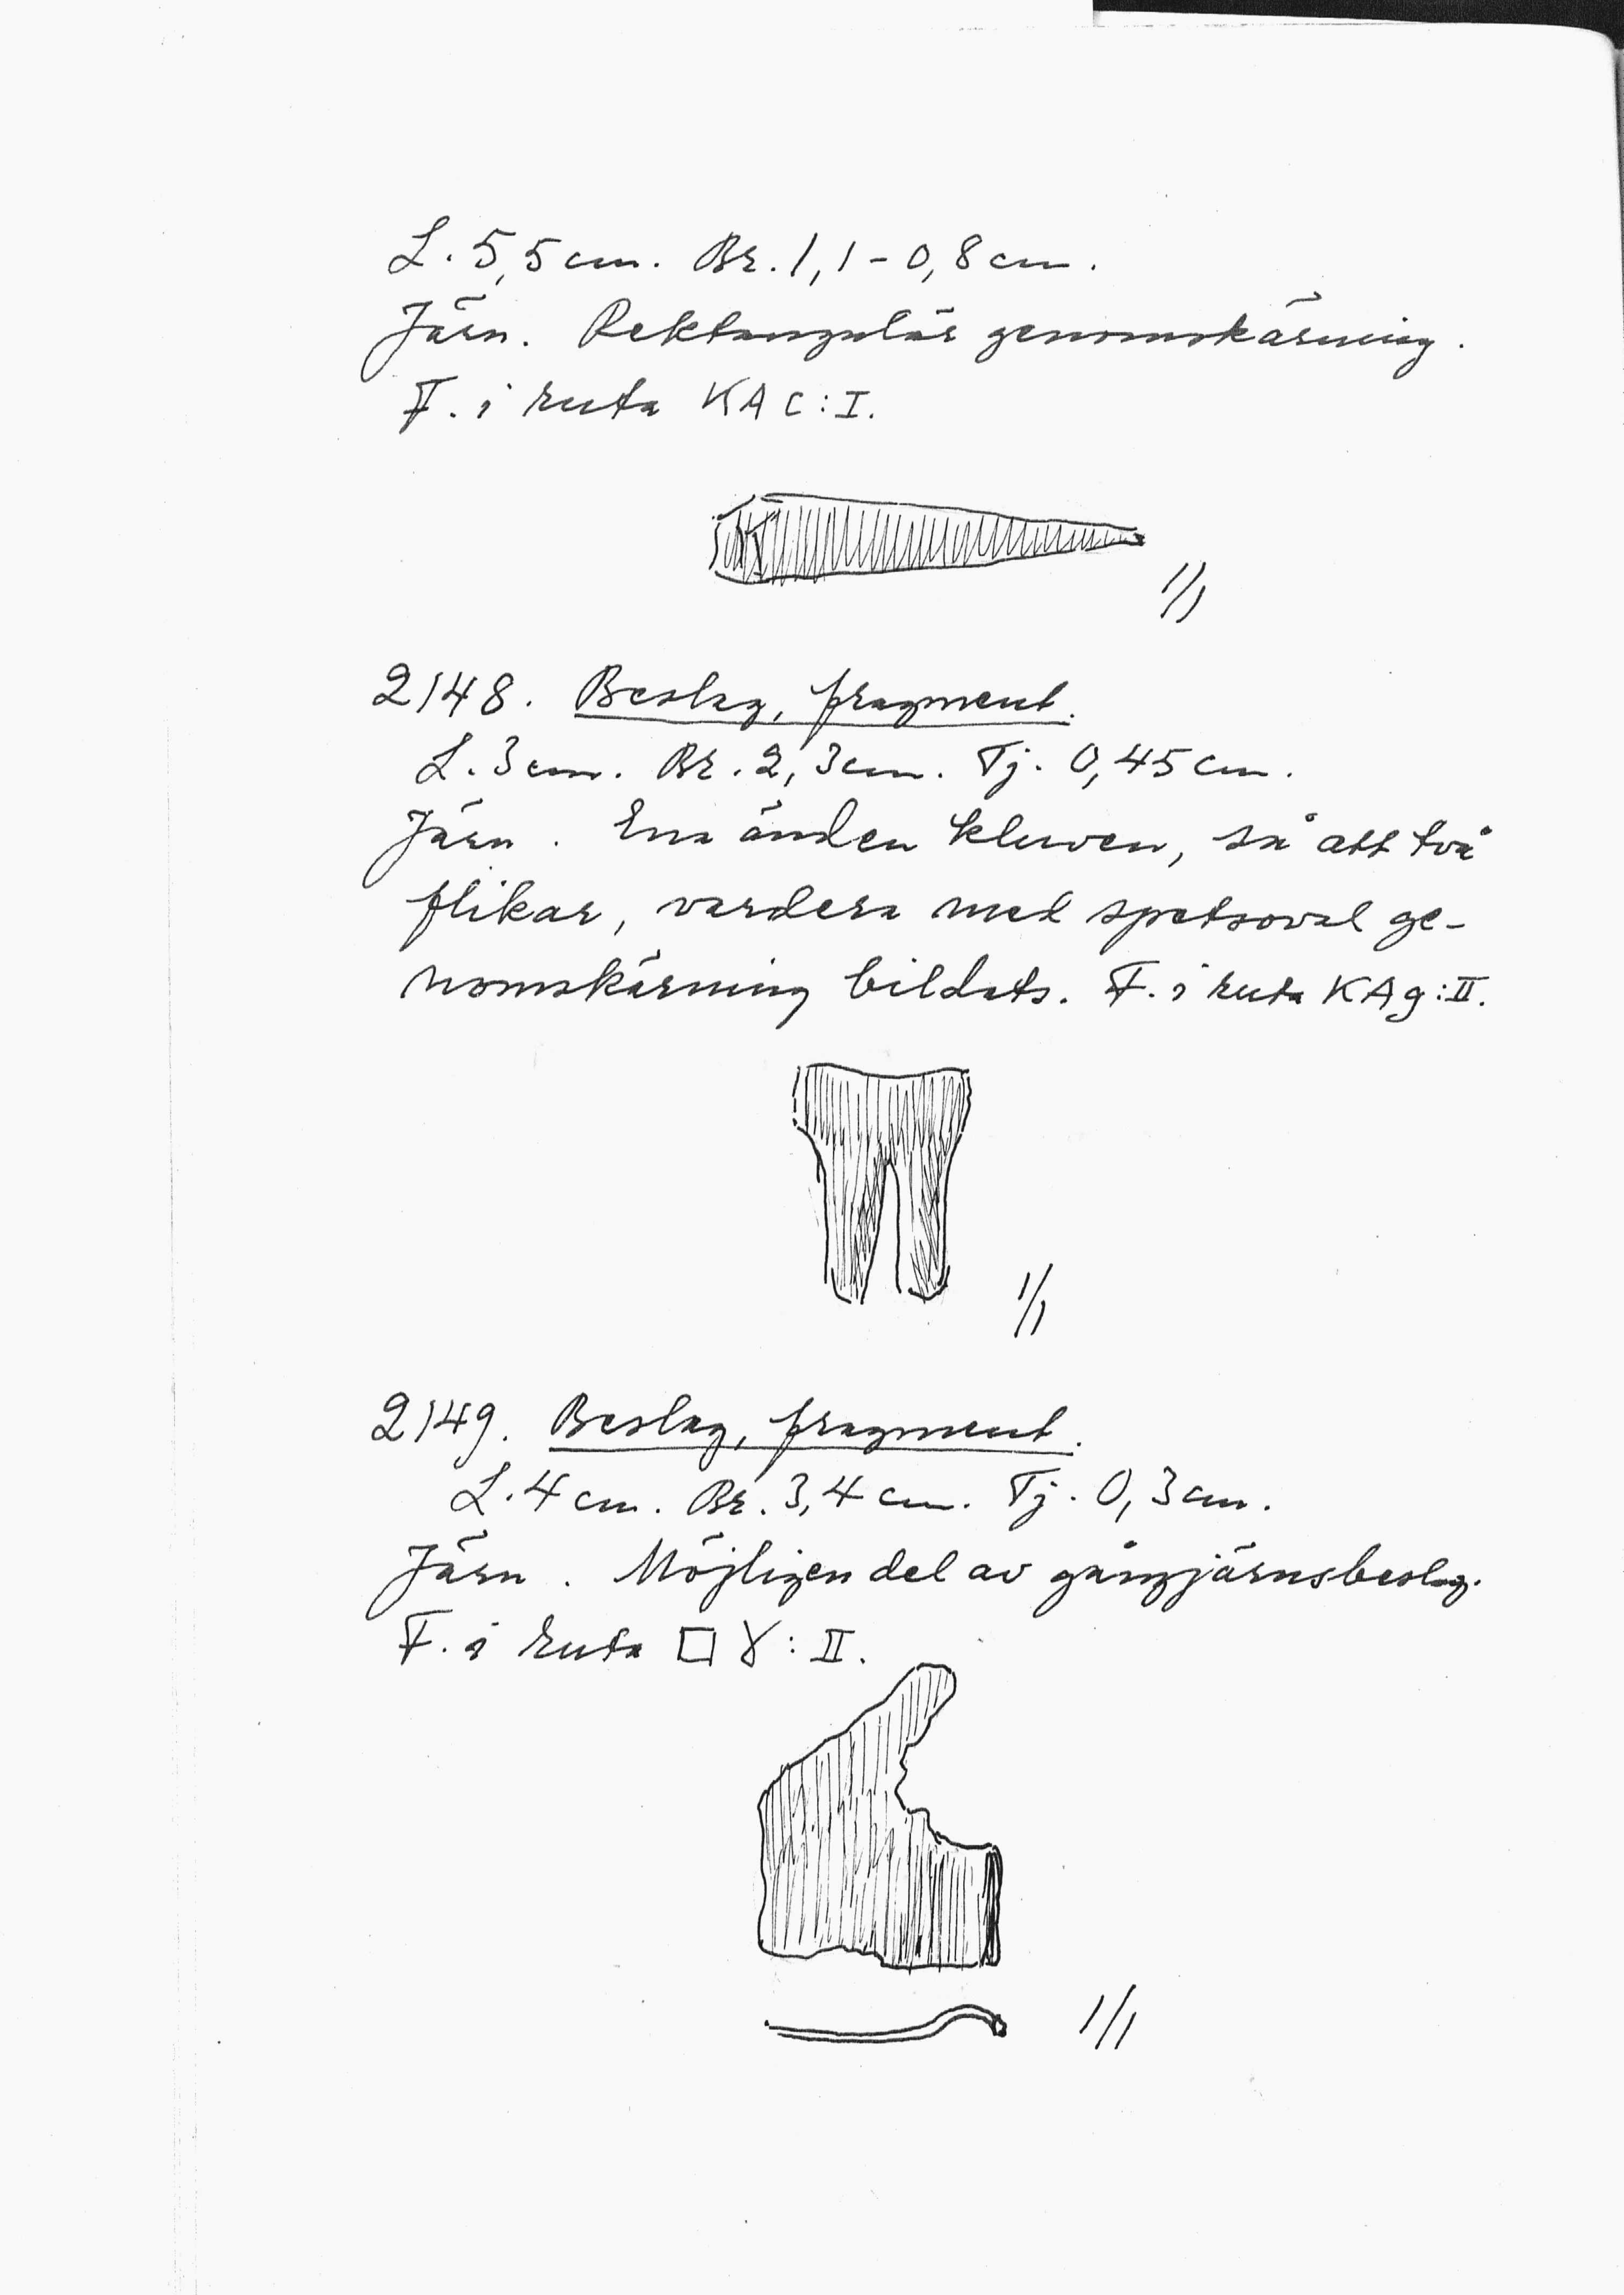 L. 5,5 cm. Br. 1,1-0,8 cm.
Järn. Rektangulär genomskärning.
F. i ruta KA c: I.
1/1
2148. Beslag, fragment.
L. 3 cm. Br. 2,3 cm. Tj. 0,45 cm.
Järn. Ena änden kluven, så att två
flikar, vardera med spetsoval ge-
nomskärning bildats. F. i ruta KA g: II.
1/1
2149. Beslag, fragment.
L. 4 cm. Br. 3,4 cm. Tj. 0,3 cm.
Järn. Möjligen del av gångjärnsbeslag.
F. i ruta □ γ: II.
1/1